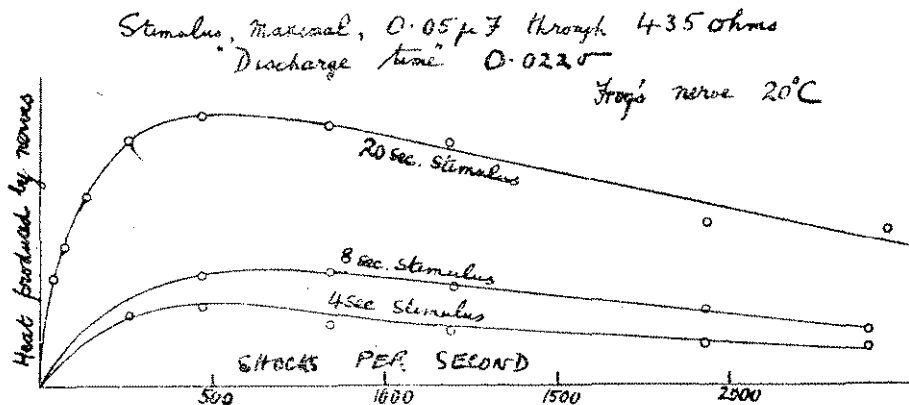 Stimulus, maximal, 0.05 μF through 435 ohms
"Discharge time" 0.022σ
Frog's nerve 20°C
Heat produced by nerves
20 sec. stimulus
8 sec. stimulus
4 sec stimulus
SHOCKS PER SECOND
500 1000 1500 2000